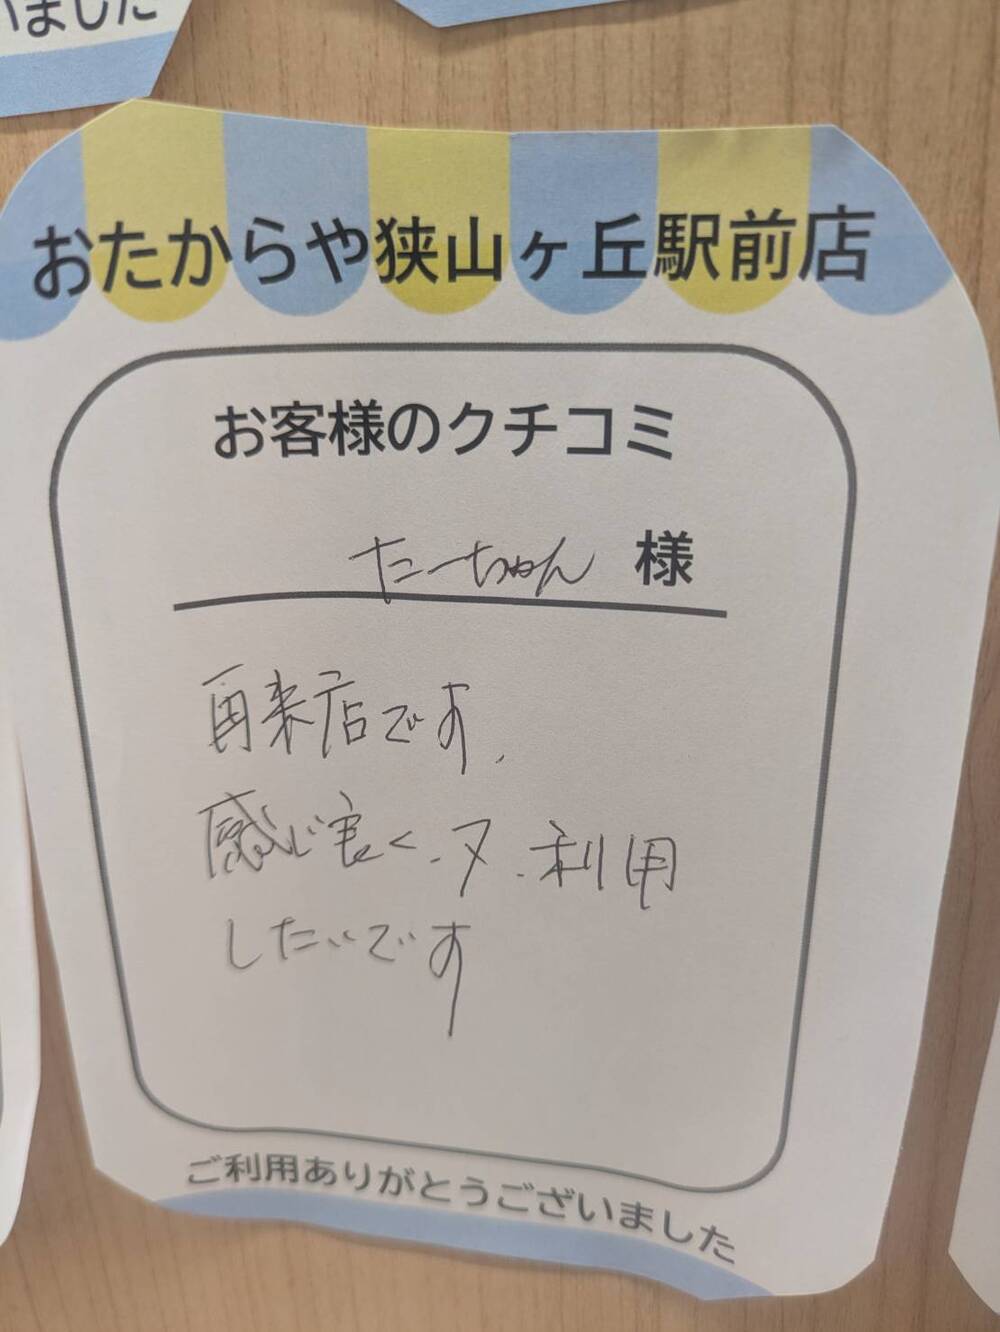 いました
おたからや狭山ヶ丘駅前店
お客様のクチコミ
たーちゃん 様
再来店です.
感じ良く、又、利用
したいです
ご利用ありがとうございました